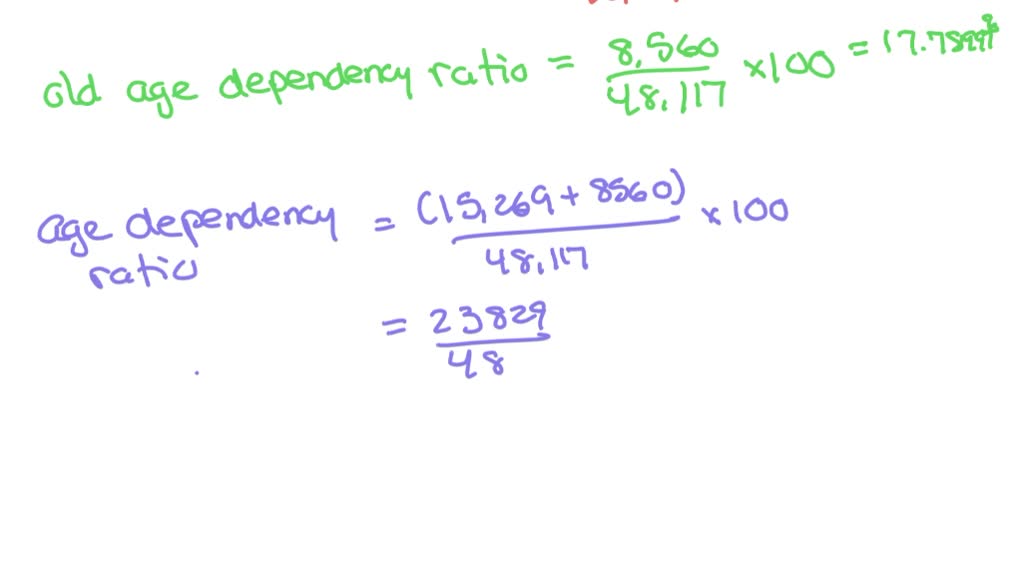 old age dependency ratio = 8,560 / 48,117 × 100 = 17.7899%
age dependency ratio = (15,269 + 8560) / 48,117 × 100
= 23829 / 48